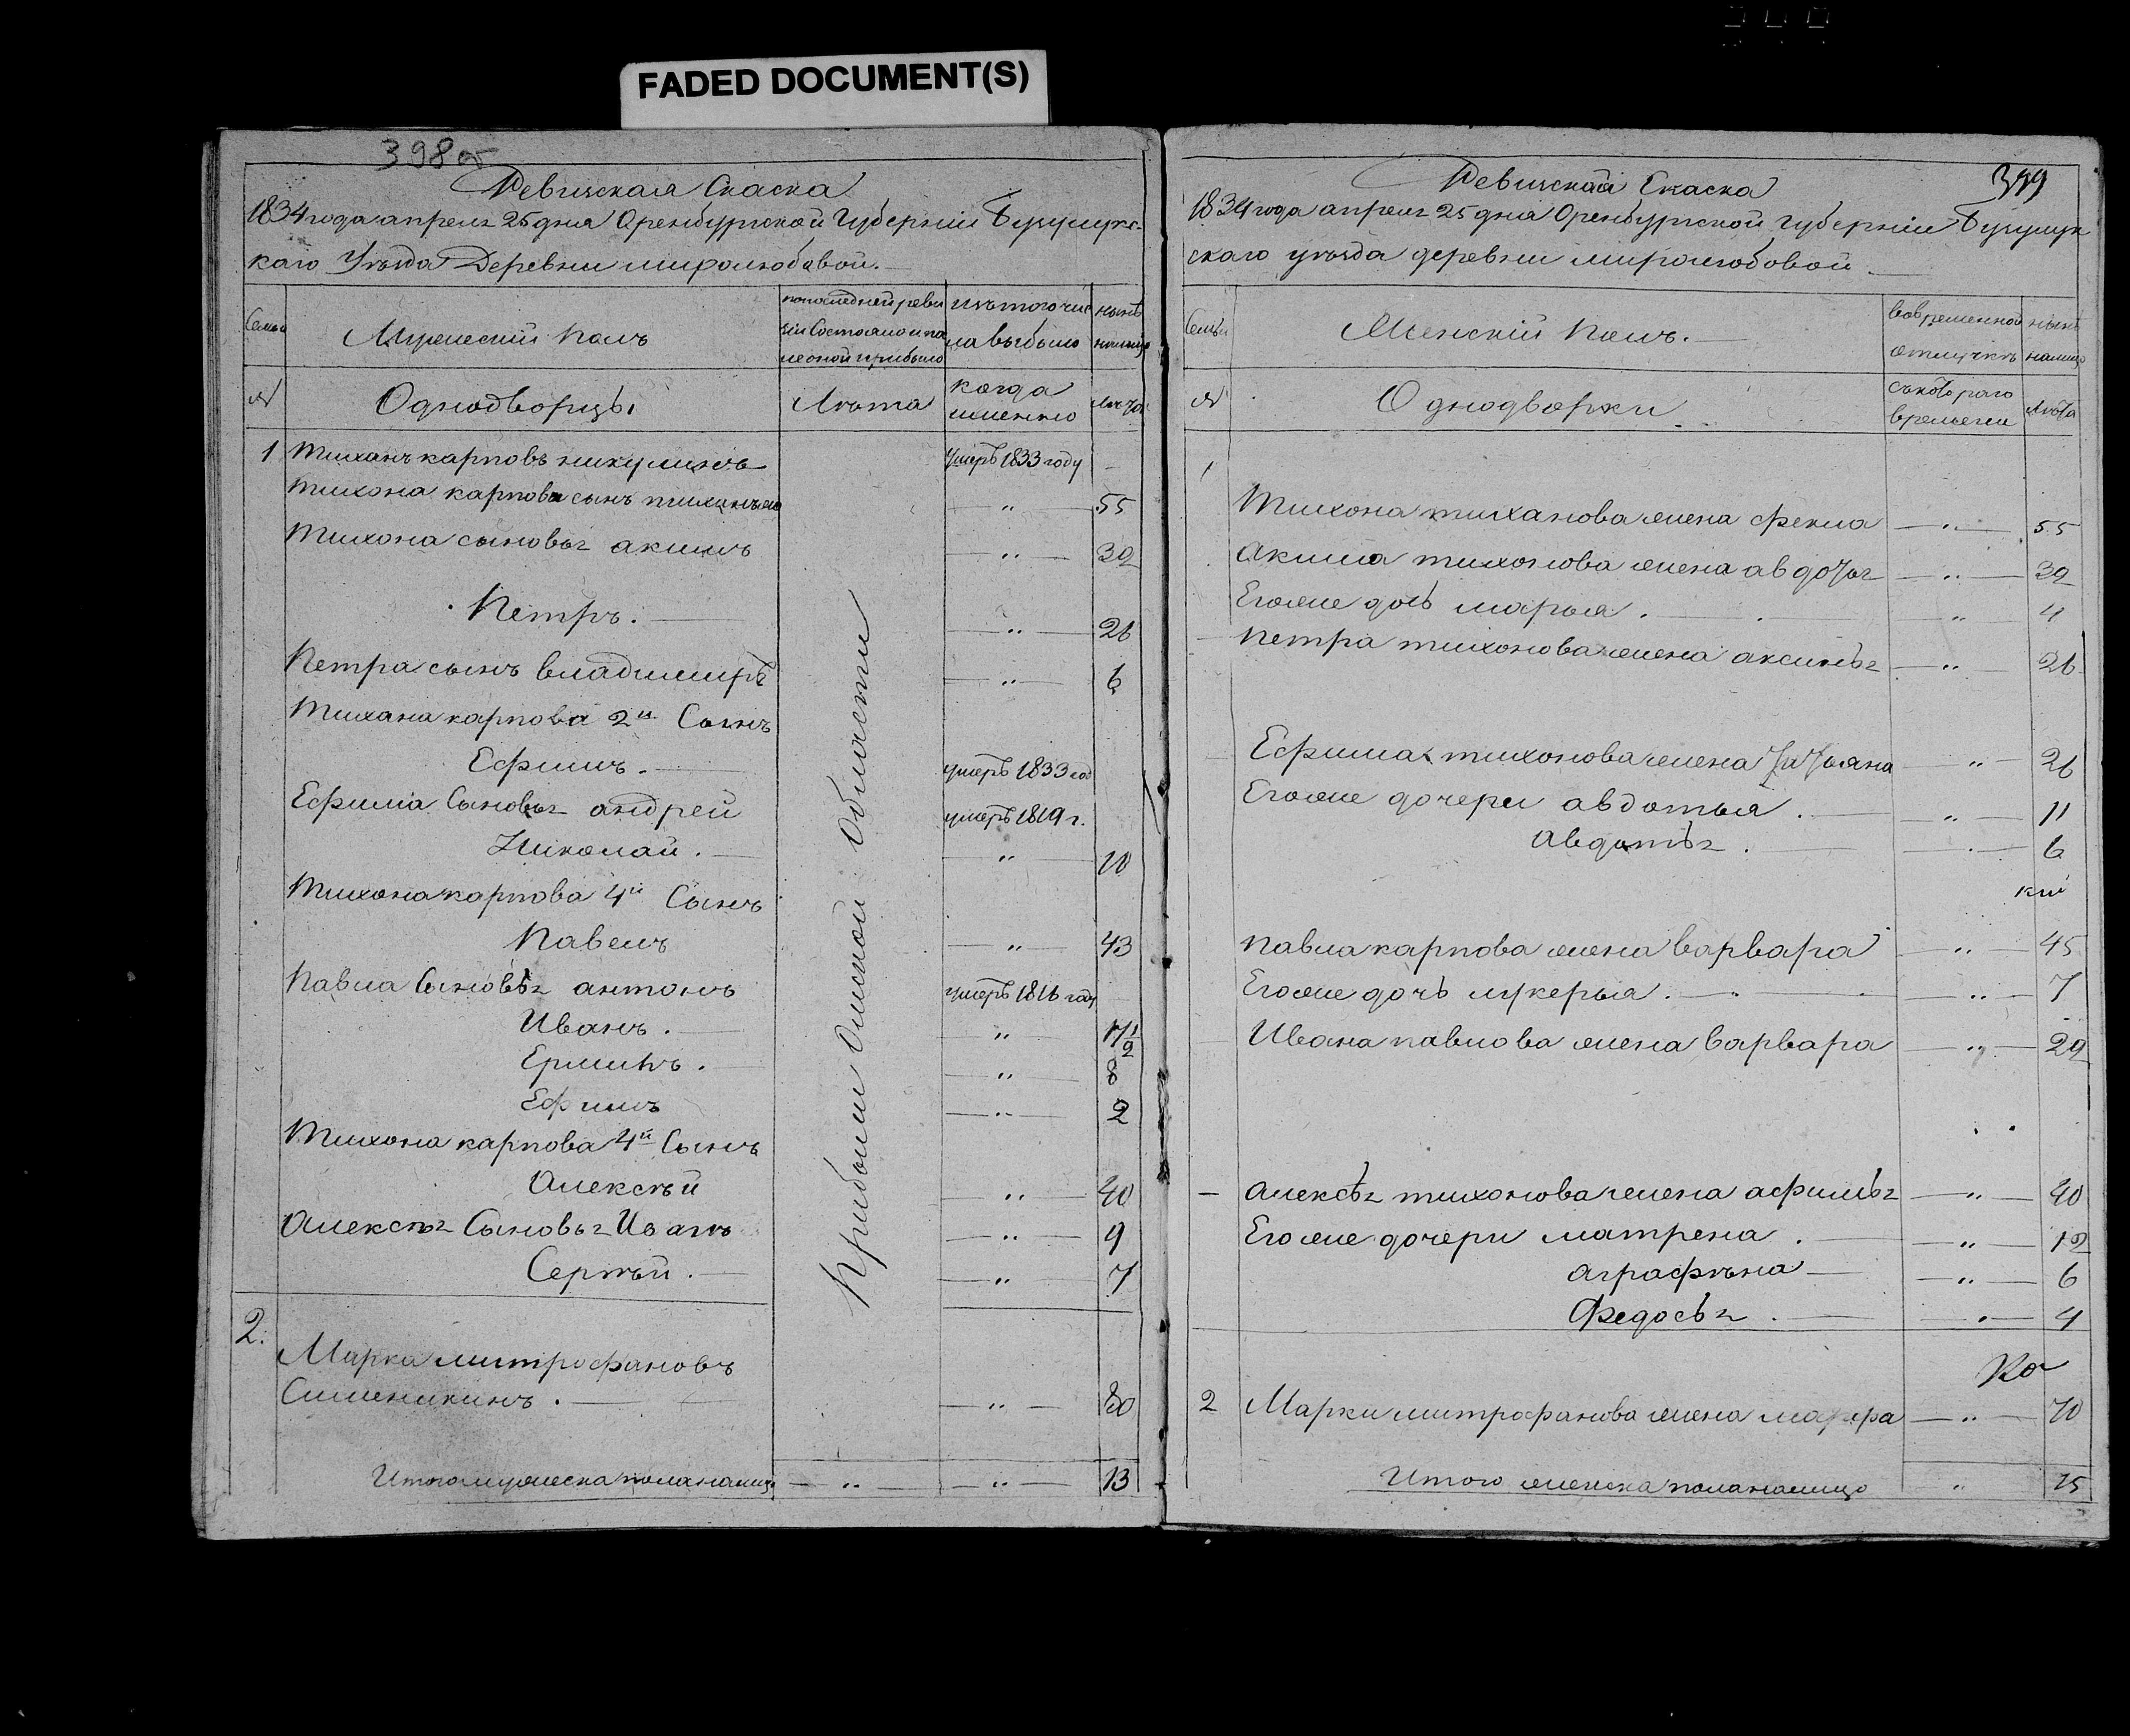 FADED DOCUMENT(S)
398об
Ревизская Скаска
1834 года апреля 25 дня Оренбургской Губернии Бузулукс-
каго Уезда Деревни миролюбавой.
Семьи
Мужеский полъ
по последней реви
зіи Состояло и по
ле оной прибыло
изъ того чис
ла выбыло
ныне
налицо
№
Однодворцы
Лъта
когда
именно
Лъта
1 Тиханъ карповъ никулинъ умеръ 1833 году
Тихона карпова сынъ тиханъ 55
Тихона сыновья акимъ 32
Петръ. 26
Петра сынъ владимиръ 6
Тихана карпова 2й Сынъ
Ефимъ. умеръ 1833 год
Ефима Сыновья андрей умеръ 1819 г.
Николай. 10
Тихона карпова 4й Сынъ
Павелъ 43
Павла Сыновья антонъ умеръ 1816 году
Иванъ.
Ерминъ. 8
Ефимъ 2
Тихона карпова 4й Сынъ
Алексъй 40
Алексъя Сыновья Иванъ 9
Сергъй. 7
Прибыли Омской Области
2.
Марка митрофановъ
Сименикинъ. 80
Итого мужеска пола налицо 13
399
Ревизская Скаска
1834 года апреля 25 дня Оренбургской губернии Бузулук
скаго уъзда деревни миролюбовой
Семьи
Женскій полъ.
во временной
отлучкъ
ныне
налицо
№
Однодворки
съ котораго
времени
Лъта
1
Тихона тиханова жена фекла 55
Акима тихонова жена авдотья 32
Его же дочь марья. 4
Петра тихонова жена аксинья 26
Ефима тихонова жена татьяна 26
Его же дочери авдотья. 11
Авдотья. 6
Павла карпова жена варвара 45
Его же дочь лукерья. 7
Ивана павлова жена варвара 22
Алексъя тихонова жена афимья 40
Его же дочери матрена. 12
аграфъна 6
Федосья. 4
2 Марки митрофанова жена 70
Итого женска пола налицо 15